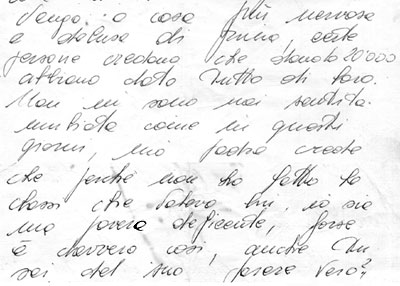 Vengo. o cosa più nervosa
e delusa di prima, certe
persone credono che dando 20'000
abbiano dato tutto di loro.
Non mi sono mai sentita
umiliata come in questi
giorni, mio padre crede
che perché non ho fatto la
che lui, io sia
una povera deficente, forse
è davvero così, anche tu
sei del suo parere vero?